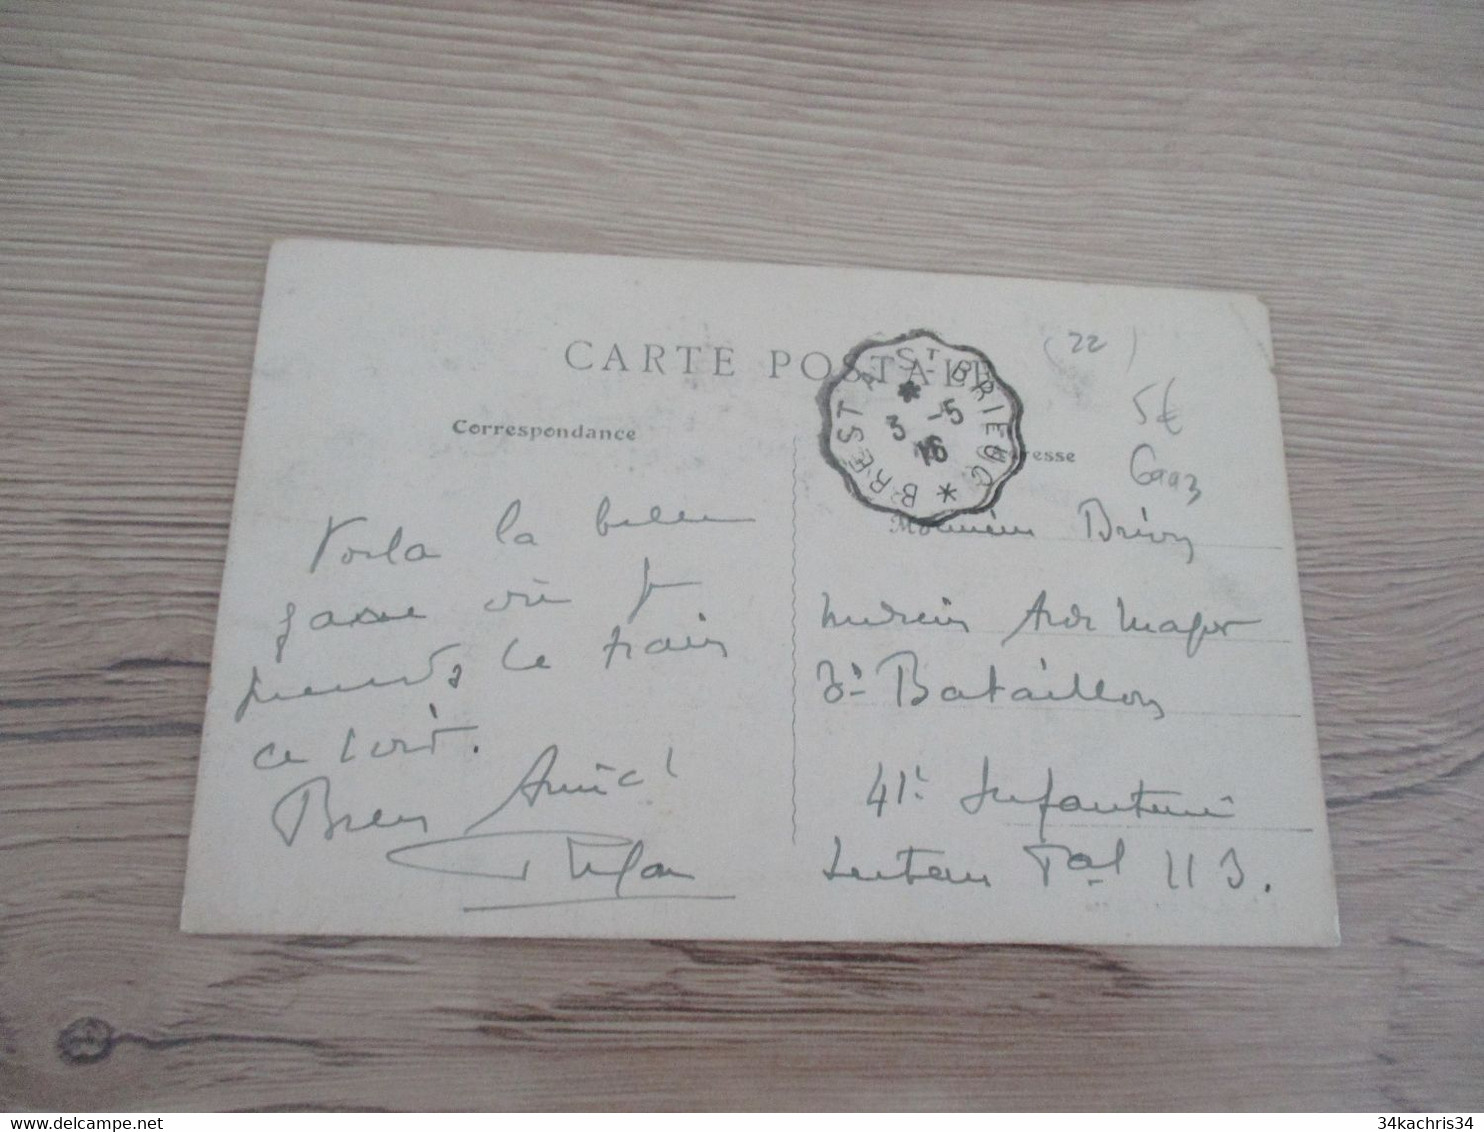 CARTE POSTALE
BREST A ST BRIEUC *
3 -5
16
(22)
5€
Correspondance
Voila la belle
gare où je
prends le train
ce soir.
Bien Amical
Monsieur Brévy
Médecin Aide Major
3è Bataillon
41è Infanterie
Secteur Pal 113.
34kachris34
34kachris34